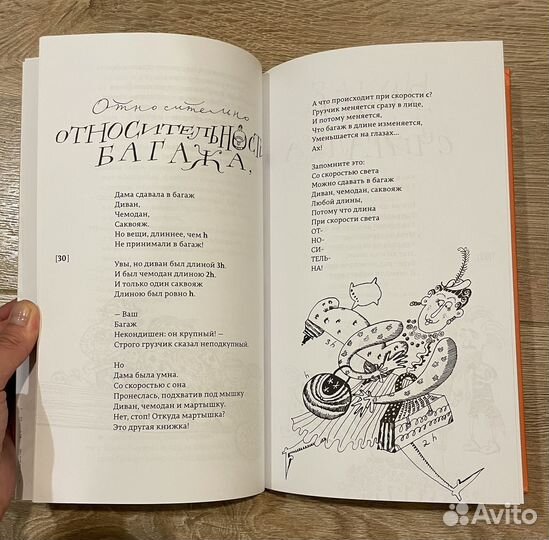 Относительно
ОТНОСИТЕЛЬНОСТЬ
БАГАЖА.
Дама сдавала в багаж
Диван,
Чемодан,
Саквояж.
Но вещи, длиннее, чем h
Не принимали в багаж!
[30]
Увы, но диван был длиной 3h.
И был чемодан длиною 2h.
И только один саквояж
Длиною был ровно h.
— Ваш
Багаж
Некондишен: он крупный! —
Строго грузчик сказал неподкупный.
Но
Дама была умна.
Со скоростью с она
Пронеслась, подхватив под мышку
Диван, чемодан и мартышку.
Нет, стоп! Откуда мартышка?
Это другая книжка!
А что происходит при скорости с?
Грузчик меняется сразу в лице,
И потому меняется,
Что багаж в длине изменяется,
Уменьшается на глазах...
Ах!
Запомните это:
Со скоростью света
Можно сдавать в багаж
Диван, чемодан, саквояж
Любой длины,
Потому что длина
При скорости света
ОТ-
НО-
СИ-
ТЕЛЬ-
НА!
3h
h
2h
Avito